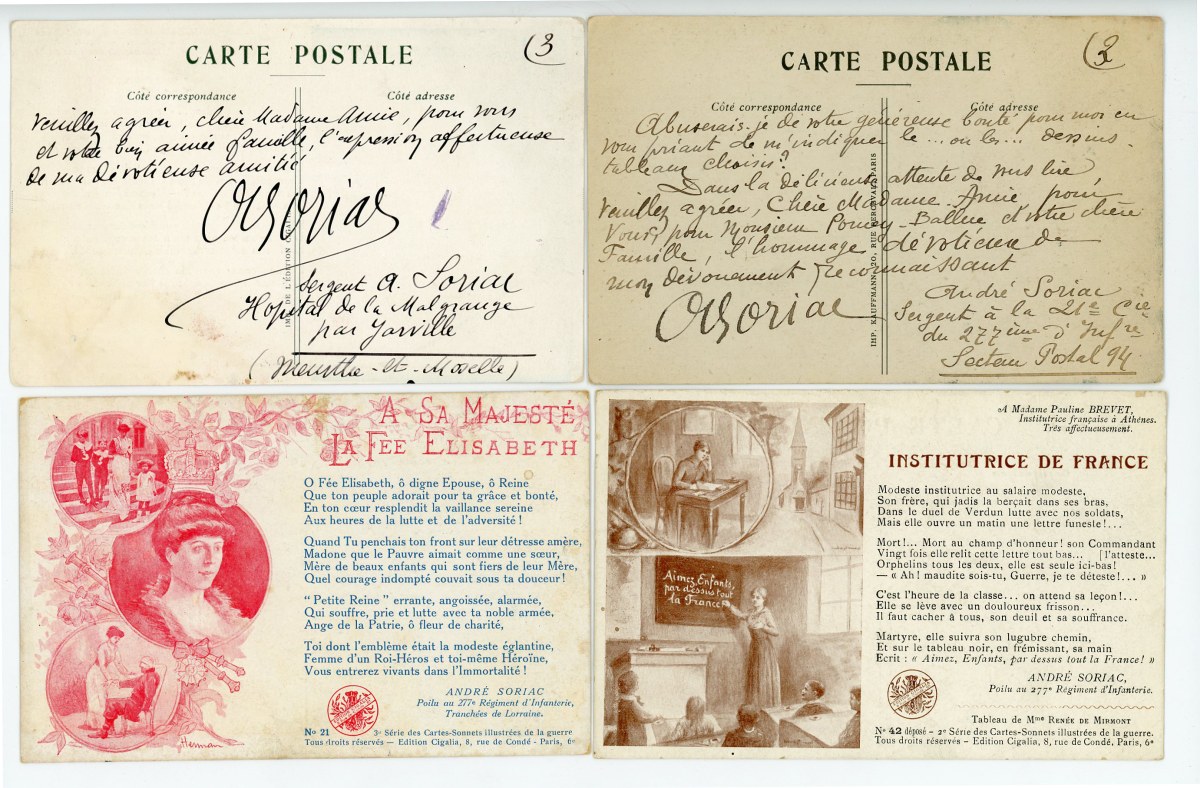 CARTE POSTALE
(3
Côté correspondance
Côté adresse
Veuillez agréer, chère Madame Annie, pour vous
et votre bien aimée famille, l'expression affectueuse
de ma dévotieuse amitié
ASoriac
Sergent A. Soriac
Hopital de la Malgrange
par Jarville
(Meurthe-et-Moselle)
CARTE POSTALE
(2
Côté correspondance
Côté adresse
Abuserais-je de votre généreuse bonté pour moi en
vous priant de m'indiquer le... ou les... dessins-
tableaux choisis?
Dans la délicieuse attente de vous lire,
Veuillez agréer, Chère Madame Annie, pour
Vous, pour Monsieur et votre chère
Famille, l'hommage dévotieux de
mon dévouement reconnaissant
ASoriac
André Soriac
Sergent à la 21e Cie
du 277ème d'Infre
Secteur Postal 94
IMP. KAUFFMANN, 20, RUE PARIS
A SA MAJESTÉ
LA FÉE ELISABETH
O Fée Elisabeth, ô digne Epouse, ô Reine
Que ton peuple adorait pour ta grâce et bonté,
En ton cœur resplendit la vaillance sereine
Aux heures de la lutte et de l'adversité !
Quand Tu penchais ton front sur leur détresse amère,
Madone que le Pauvre aimait comme une sœur,
Mère de beaux enfants qui sont fiers de leur Mère,
Quel courage indompté couvait sous ta douceur !
“ Petite Reine ” errante, angoissée, alarmée,
Qui souffre, prie et lutte avec ta noble armée,
Ange de la Patrie, ô fleur de charité,
Toi dont l'emblème était la modeste églantine,
Femme d'un Roi-Héros et toi-même Héroïne,
Vous entrerez vivants dans l'Immortalité !
ANDRÉ SORIAC
Poilu au 277e Régiment d'Infanterie,
Tranchées de Lorraine.
Herman
No 21
3e Série des Cartes-Sonnets illustrées de la guerre
Tous droits réservés — Edition Cigalia, 8, rue de Condé - Paris, 6e
A Madame Pauline BREVET,
Institutrice française à Athènes.
Très affectueusement.
INSTITUTRICE DE FRANCE
Modeste institutrice au salaire modeste,
Son frère, qui jadis la berçait dans ses bras,
Dans le duel de Verdun lutte avec nos soldats,
Mais elle ouvre un matin une lettre funeste!...
Mort!... Mort au champ d'honneur! son Commandant
Vingt fois elle relit cette lettre tout bas... [l'atteste...
Orphelins tous les deux, elle est seule ici-bas!
— « Ah! maudite sois-tu, Guerre, je te déteste!... »
C'est l'heure de la classe... on attend sa leçon!...
Elle se lève avec un douloureux frisson...
Il faut cacher à tous, son deuil et sa souffrance.
Martyre, elle suivra son lugubre chemin,
Et sur le tableau noir, en frémissant, sa main
Ecrit : « Aimez, Enfants, par dessus tout la France! »
ANDRÉ SORIAC,
Poilu au 277e Régiment d'Infanterie.
Aimez, Enfants,
par dessus tout
la France
Tableau de Mme RENÉE DE MIRMONT
No 42 déposé - 2e Série des Cartes-Sonnets illustrées de la guerre
Tous droits réservés - Edition Cigalia, 8, rue de Condé, Paris, 6e